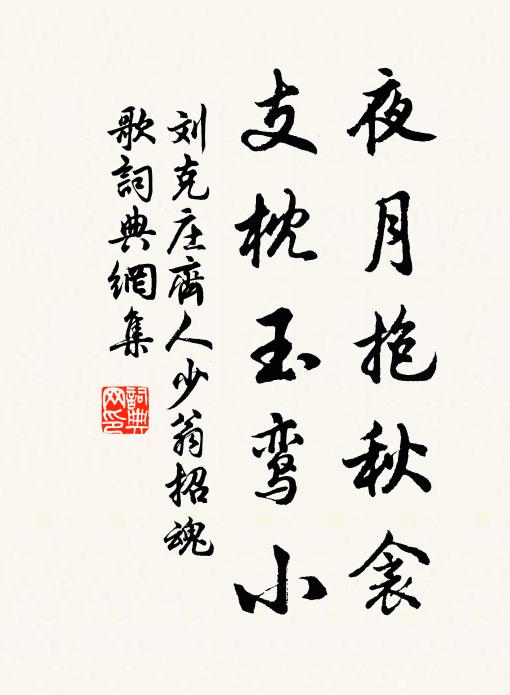 夜月抱秋衾
支枕玉鸾小
刘克庄齊人少翁招魂
歌詞典網集
詞典网印